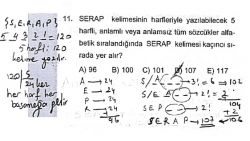 {S,E,R,A,P}
5 4 3 2 1 = 120
5 harfli 120
kelime yazılır.
120/5
24 her
her harf her
basamağa gelir
11. SERAP kelimesinin harfleriyle yazılabilecek 5
harfli, anlamlı veya anlamsız tüm sözcükler alfa-
betik sıralandığında SERAP kelimesi kaçıncı sı-
rada yer alır?
A) 96 B) 100 C) 101 D) 107 E) 117
A → 24
E → 24
P → 24
R → 24
96
S/A 3! = 6 → 102
S/E/A 2! = 2
S E P 2! =
S E R A P → 107